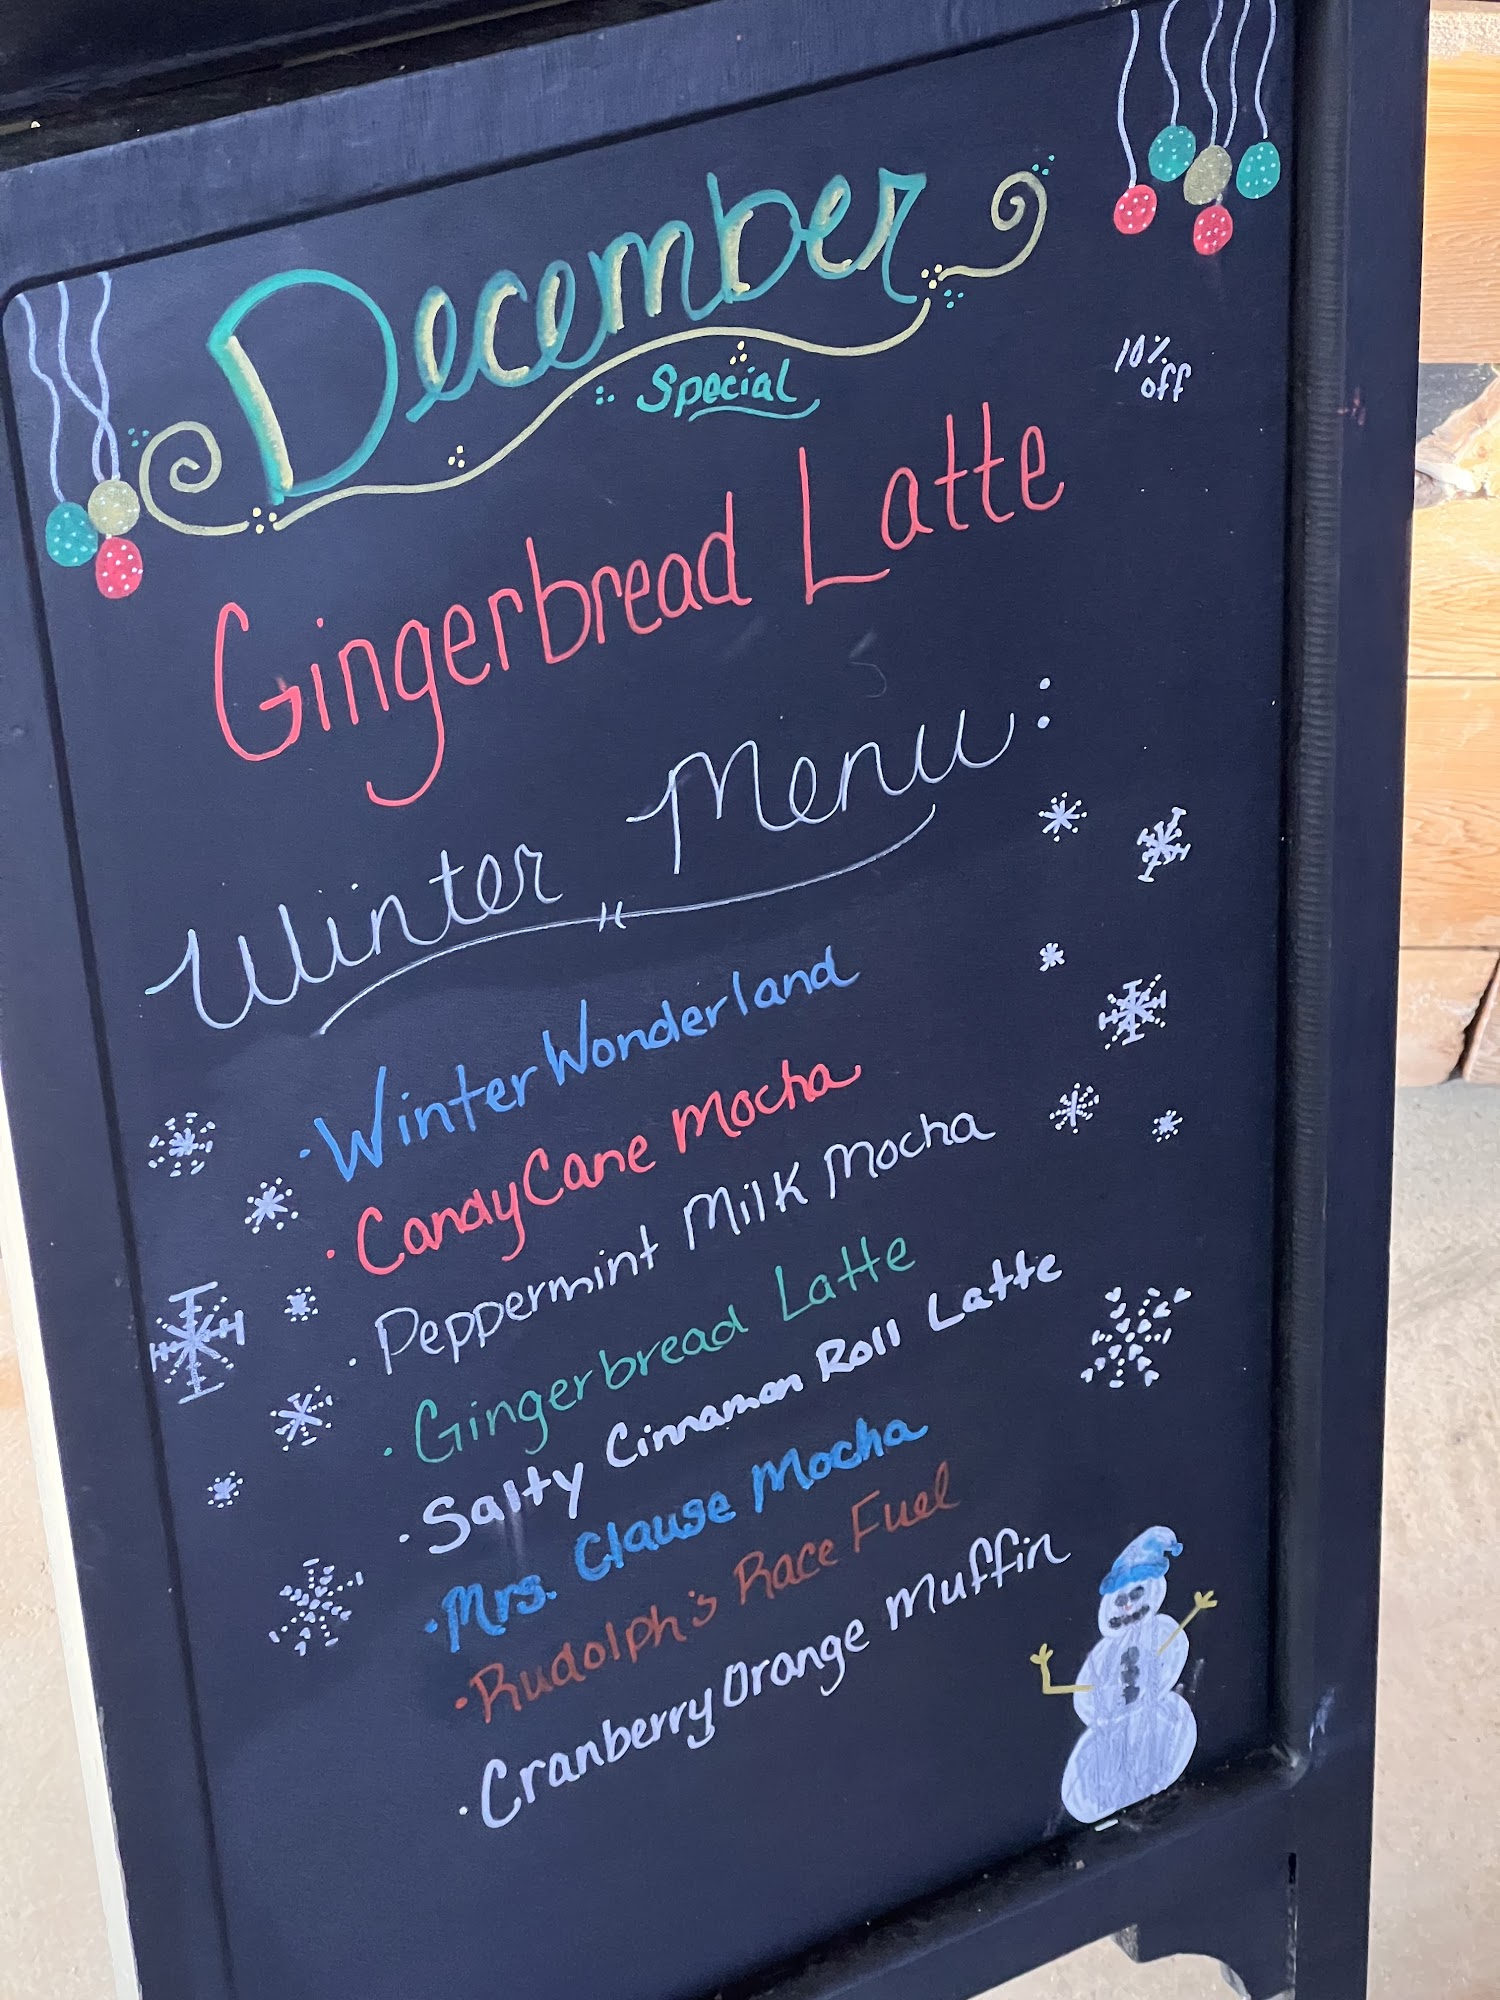 December
Special
10% off
Gingerbread Latte
Winter Menu:
· Winter Wonderland
· Candy Cane Mocha
· Peppermint Milk Mocha
· Gingerbread Latte
· Salty Cinnamon Roll Latte
· Mrs. Clause Mocha
· Rudolph's Race Fuel
· Cranberry Orange Muffin